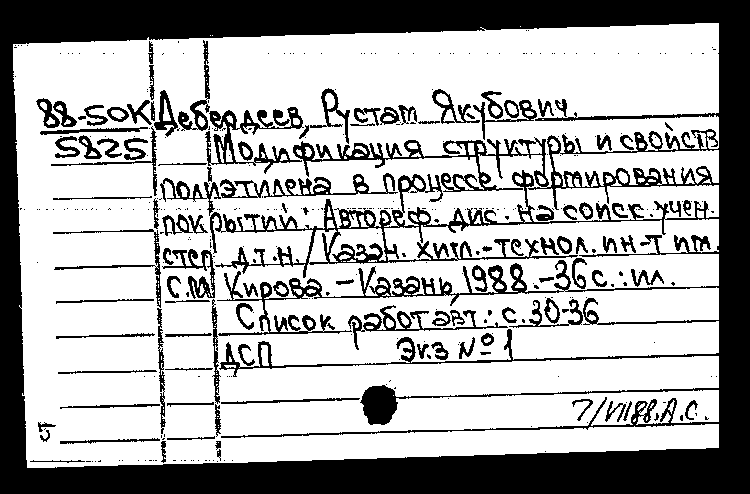 88-50К Дебердеев, Рустам Якубович.
5825 Модификация структуры и свойств
полиэтилена в процессе формирования
покрытий: Автореф. дис. на соиск. учен.
степ. д.т.н. / Казан. хим.-технол. ин-т им.
С.М. Кирова. - Казань, 1988. - 36 с.: ил.
Список работ авт.: с. 30-36
ДСП Экз № 1
7/VII 88. А.С.
5